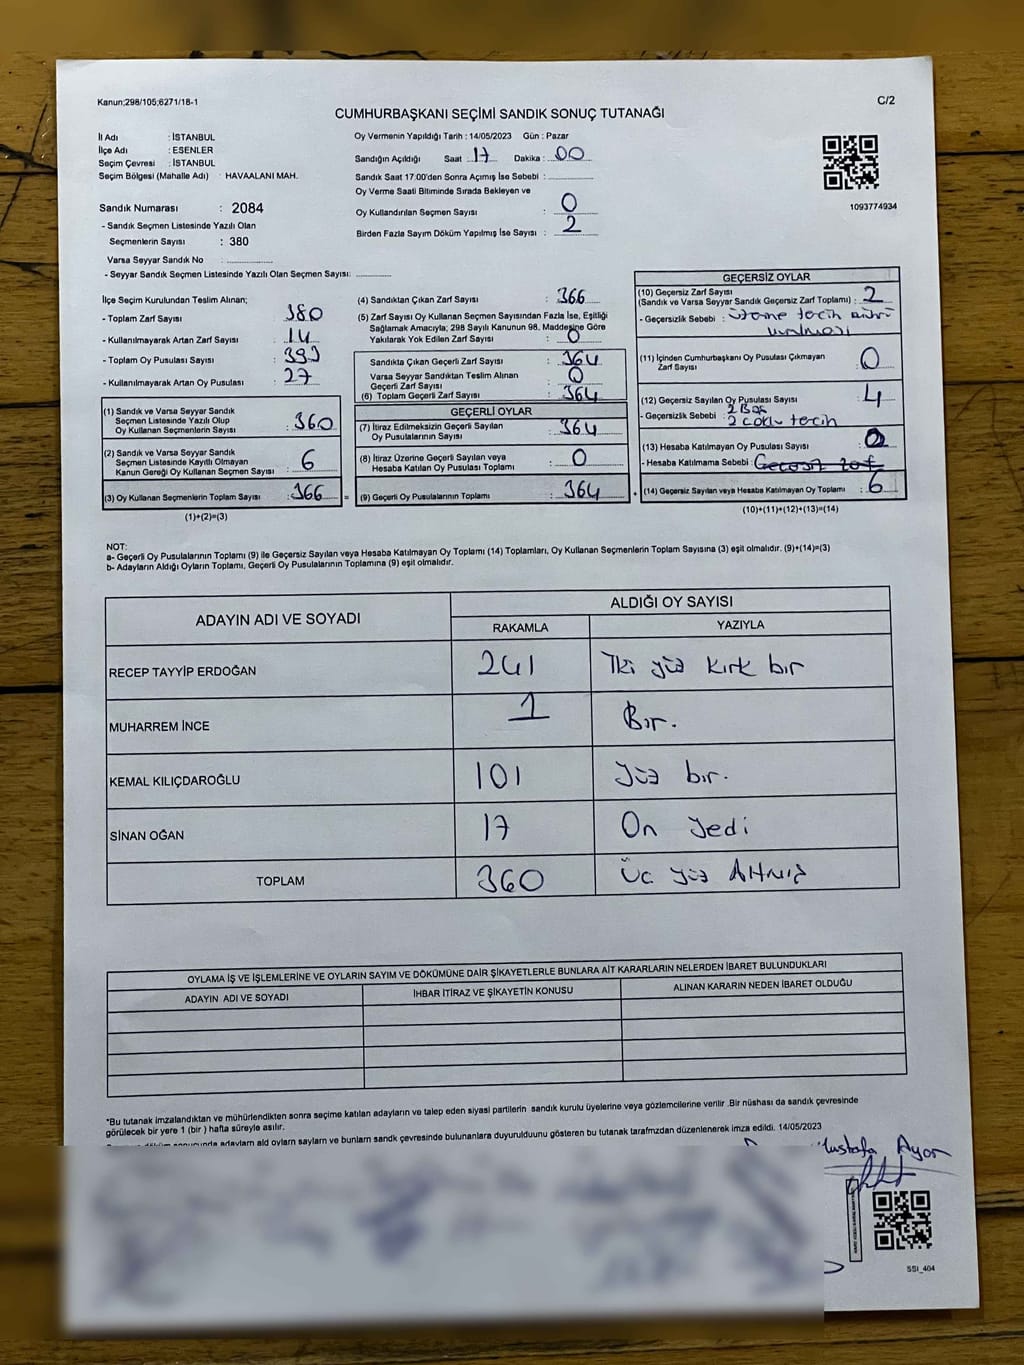 Kanun;298/105;6271/18-1
C/2
CUMHURBAŞKANI SEÇİMİ SANDIK SONUÇ TUTANAĞI
İl Adı : İSTANBUL
İlçe Adı : ESENLER
Seçim Çevresi : İSTANBUL
Seçim Bölgesi (Mahalle Adı) : HAVAALANI MAH.
Sandık Numarası : 2084
- Sandık Seçmen Listesinde Yazılı Olan
Seçmenlerin Sayısı : 380
Varsa Seyyar Sandık No :
- Seyyar Sandık Seçmen Listesinde Yazılı Olan Seçmen Sayısı:
Oy Vermenin Yapıldığı Tarih : 14/05/2023 Gün : Pazar
Sandığın Açıldığı Saat : 17 Dakika : 00
Sandık Saat 17:00'den Sonra Açımış İse Sebebi :
Oy Verme Saati Bitiminde Sırada Bekleyen ve
Oy Kullandırılan Seçmen Sayısı : 0
Birden Fazla Sayım Döküm Yapılmış İse Sayısı : 2
1093774934
İlçe Seçim Kurulundan Teslim Alınan;
- Toplam Zarf Sayısı : 380
- Kullanılmayarak Artan Zarf Sayısı : 14
- Toplam Oy Pusulası Sayısı : 393
- Kullanılmayarak Artan Oy Pusulası : 27
(1) Sandık ve Varsa Seyyar Sandık
Seçmen Listesinde Yazılı Olup
Oy Kullanan Seçmenlerin Sayısı : 360
(2) Sandık ve Varsa Seyyar Sandık
Seçmen Listesinde Kayıtlı Olmayan
Kanun Gereği Oy Kullanan Seçmen Sayısı : 6
(3) Oy Kullanan Seçmenlerin Toplam Sayısı : 366 =
(1)+(2)=(3)
(4) Sandıktan Çıkan Zarf Sayısı : 366
(5) Zarf Sayısı Oy Kullanan Seçmen Sayısından Fazla İse, Eşitliği
Sağlamak Amacıyla; 298 Sayılı Kanunun 98. Maddesine Göre
Yakılarak Yok Edilen Zarf Sayısı : 0
Sandıkta Çıkan Geçerli Zarf Sayısı : 364
Varsa Seyyar Sandıktan Teslim Alınan
Geçerli Zarf Sayısı : 0
(6) Toplam Geçerli Zarf Sayısı : 364
GEÇERLİ OYLAR
(7) İtiraz Edilmeksizin Geçerli Sayılan
Oy Pusulalarının Sayısı : 364
(8) İtiraz Üzerine Geçerli Sayılan veya
Hesaba Katılan Oy Pusulası Toplamı : 0
(9) Geçerli Oy Pusulalarının Toplamı : 364
GEÇERSİZ OYLAR
(10) Geçersiz Zarf Sayısı
(Sandık ve Varsa Seyyar Sandık Geçersiz Zarf Toplamı) : 2
- Geçersizlik Sebebi : tercih
(11) İçinden Cumhurbaşkanı Oy Pusulası Çıkmayan
Zarf Sayısı : 0
(12) Geçersiz Sayılan Oy Pusulası Sayısı : 4
- Geçersizlik Sebebi : 2 Boş
2 çoklu tercih
(13) Hesaba Katılmayan Oy Pusulası Sayısı : 0
- Hesaba Katılmama Sebebi :
(14) Geçersiz Sayılan veya Hesaba Katılmayan Oy Toplamı : 6
(10)+(11)+(12)+(13)=(14)
NOT:
a- Geçerli Oy Pusulalarının Toplamı (9) ile Geçersiz Sayılan veya Hesaba Katılmayan Oy Toplamı (14) Toplamları, Oy Kullanan Seçmenlerin Toplam Sayısına (3) eşit olmalıdır. (9)+(14)=(3)
b- Adayların Aldığı Oyların Toplamı, Geçerli Oy Pusulalarının Toplamına (9) eşit olmalıdır.
ADAYIN ADI VE SOYADI ALDIĞI OY SAYISI
RAKAMLA YAZIYLA
RECEP TAYYİP ERDOĞAN 241 İki yüz kırk bir
MUHARREM İNCE 1 Bir.
KEMAL KILIÇDAROĞLU 101 Yüz bir.
SİNAN OĞAN 17 On yedi
TOPLAM 360 Üç yüz Altmış
OYLAMA İŞ VE İŞLEMLERİNE VE OYLARIN SAYIM VE DÖKÜMÜNE DAİR ŞİKAYETLERLE BUNLARA AİT KARARLARIN NELERDEN İBARET BULUNDUKLARI
ADAYIN ADI VE SOYADI İHBAR İTİRAZ VE ŞİKAYETİN KONUSU ALINAN KARARIN NEDEN İBARET OLDUĞU
*Bu tutanak imzalandıktan ve mühürlendikten sonra seçime katılan adayların ve talep eden siyasi partilerin sandık kurulu üyelerine veya gözlemcilerine verilir .Bir nüshası da sandık çevresinde
görülecek bir yere 1 (bir ) hafta süreyle asılır.
adayların aldı oyların sayların ve bunların sandık çevresinde bulunanlara duyurulduunu gösteren bu tutanak tarafmzdan düzenlenerek imza edildi. 14/05/2023
Mustafa
SSI_404